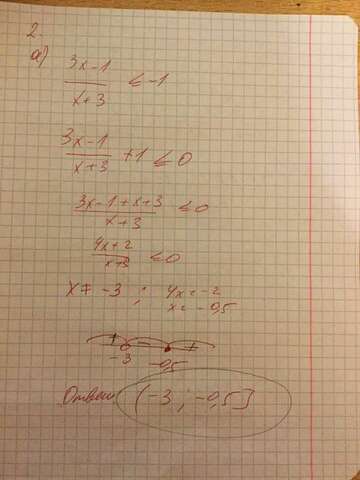 2.
а) (3x-1)/(x+3) ≤ -1
(3x-1)/(x+3) +1 ≤ 0
(3x-1+x+3)/(x+3) ≤ 0
(4x+2)/(x+3) ≤ 0
x ≠ -3 ; 4x = -2
x = -0,5
+ - +
-3 -0,5
Ответ (-3 ; -0,5]